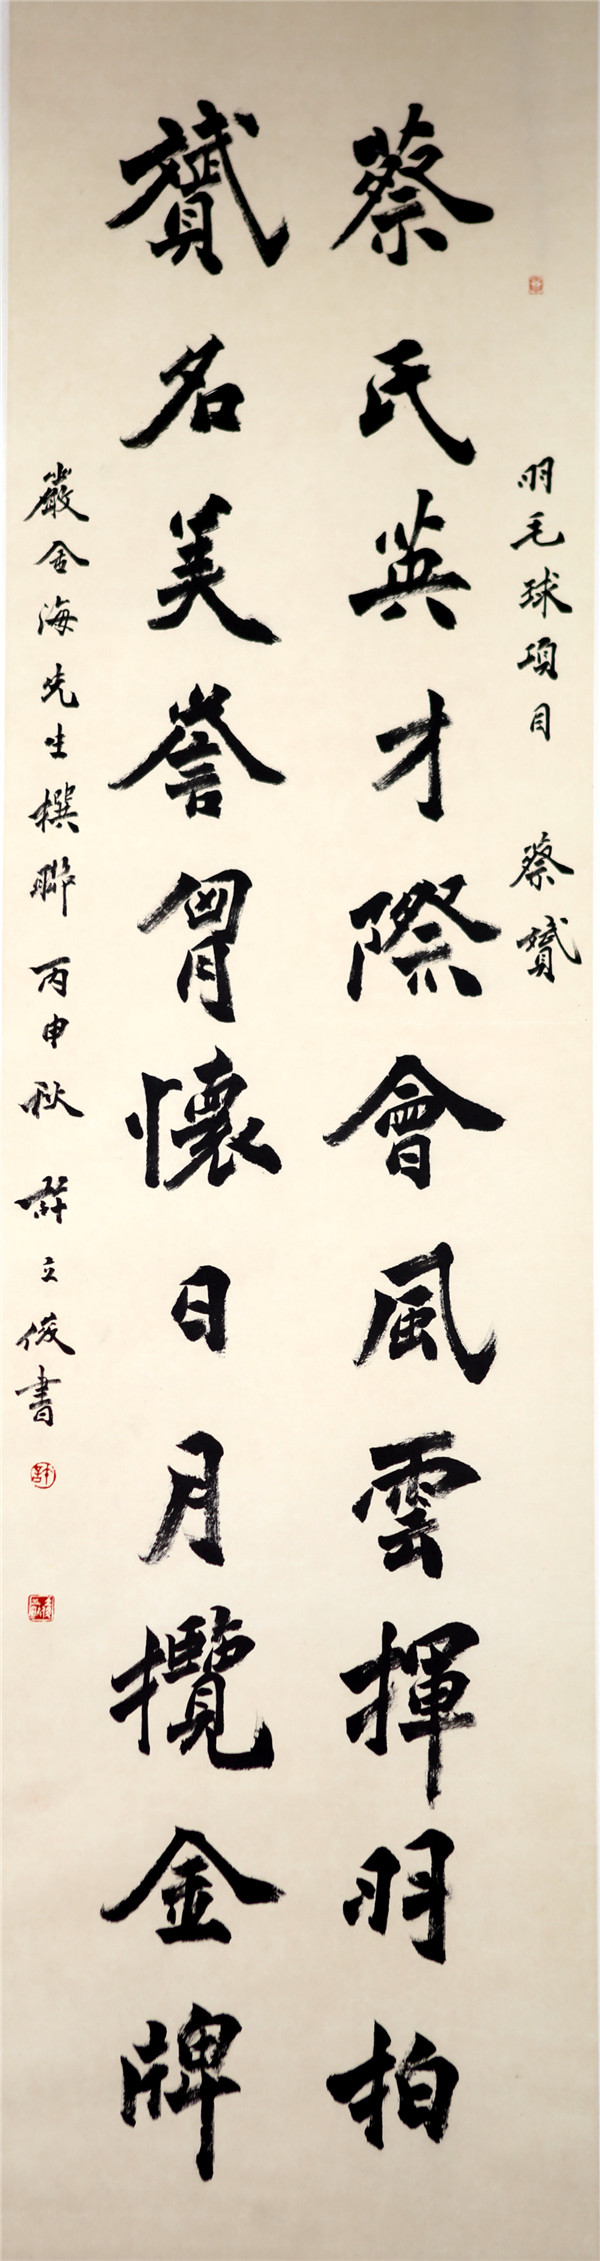 羽毛球項目 蔡贇
蔡氏英才際會風雲揮羽拍
贇名美譽胷懷日月攬金牌
嚴金海先生撰聯丙申秋許立俊書